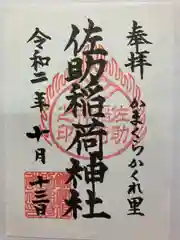 奉拝
かまくらかくれ里
佐助稲荷神社
令和二年十月十三日